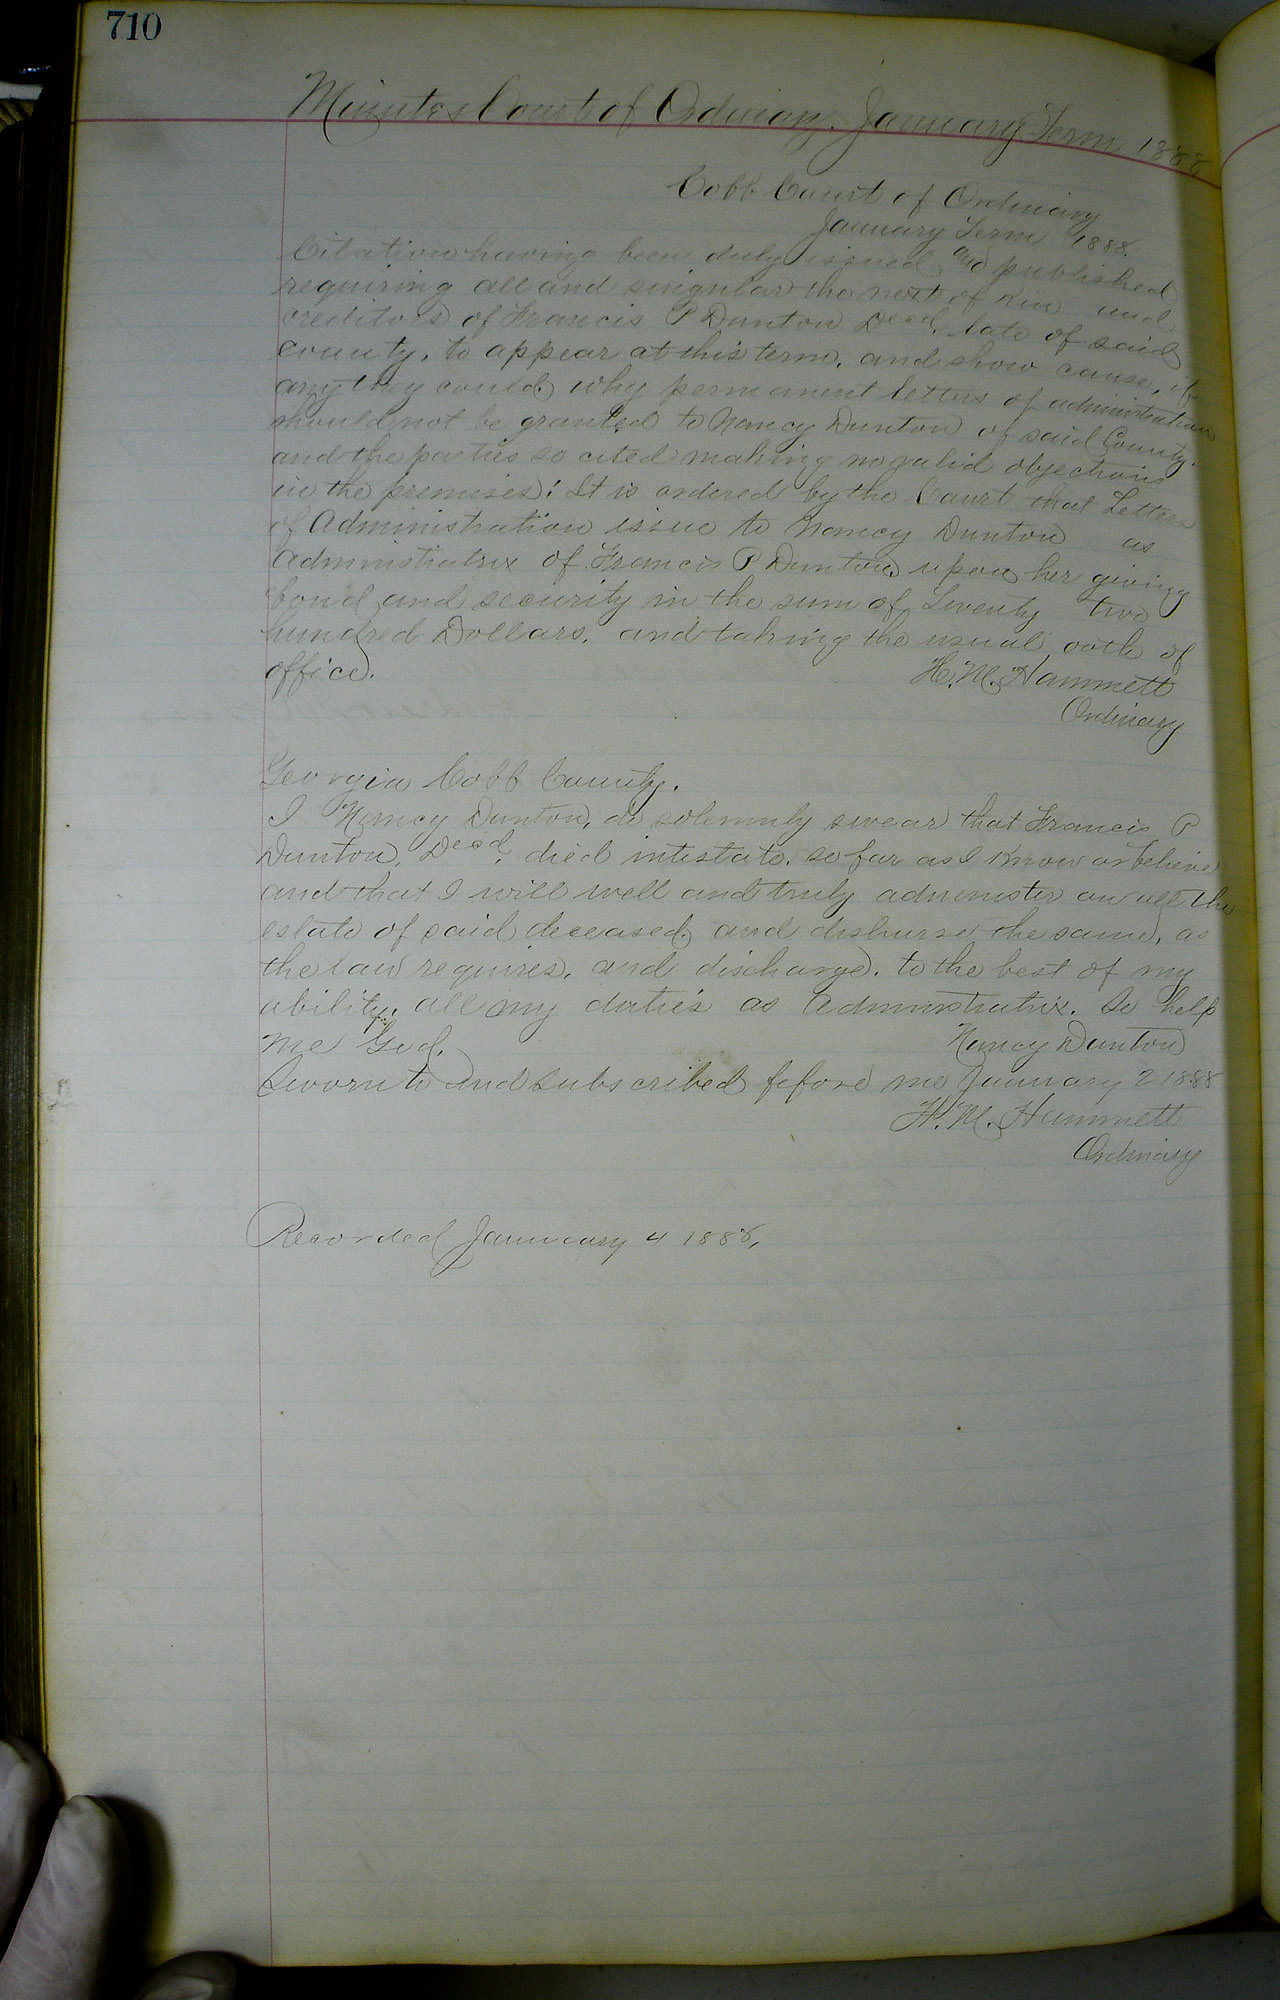 710
Minutes Court of Ordinary, January Term 1888
Cobb Court of Ordinary
January Term 1888.
Citation having been duly issued and published
requiring all and singular the next of Kin and
creditors of Francis P Dunton Decd, late of said
county, to appear at this term, and show cause, if
any they could, why permanent letters of administration
should not be granted to Nancy Dunton of said County.
and the parties so cited making no valid objections
in the premises; It is ordered by the Court that Letters
of Administration issue to Nancy Dunton as
Administratrix of Francis P Dunton, upon her giving
bond and security in the sum of Twenty two
hundred Dollars, and taking the usual oath of
office.
H. M. Hammett
Ordinary
Georgia Cobb County.
I Nancy Dunton, do solemnly swear that Francis P
Dunton, Decd, died intestate, so far as I know or believe
and that I will well and truly administer on all the
estate of said deceased, and disburse the same, as
the law requires, and discharge, to the best of my
ability, all my duties as Administratrix. So help
me God.
Nancy Dunton
Sworn to and subscribed before me January 2 1888
H. M. Hammett
Ordinary
Recorded January 4 1888,